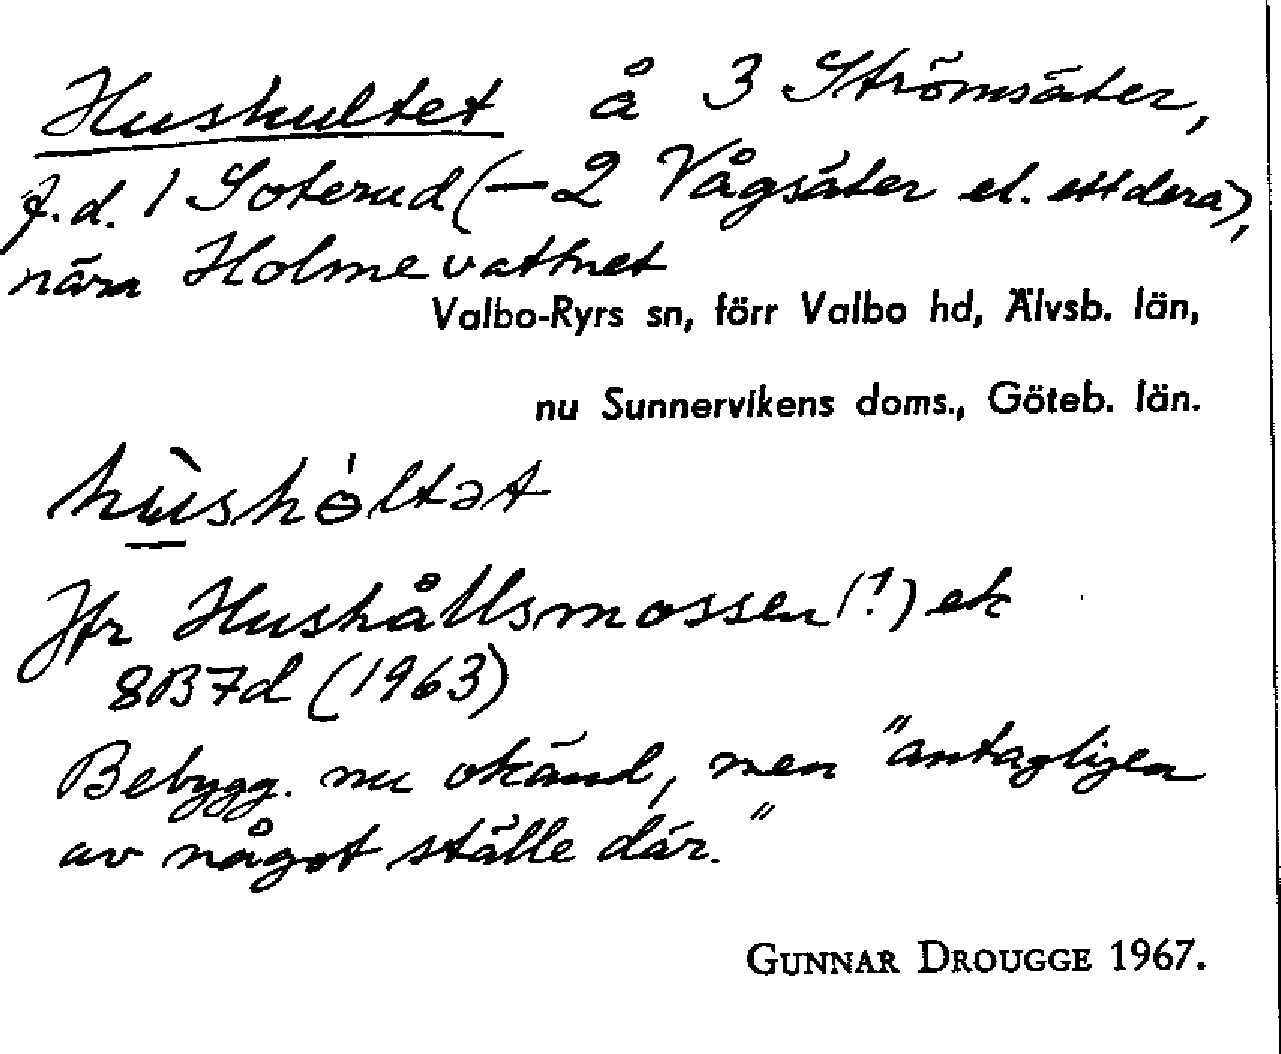 Huskultet å 3 Strömsäter,
f.d. 1 Soterud (– 2 Vågsäter el. ettdera),
nära Holmevattnet
Valbo-Ryrs sn, förr Valbo hd, Älvsb. län,
nu Sunnervikens doms., Göteb. län.
hùshɵ́ltət
Jfr Hushållsmossen (!) ek
8B7d (1963)
Bebygg. nu okänd, men "antagligen
av något ställe där."
GUNNAR DROUGGE 1967.